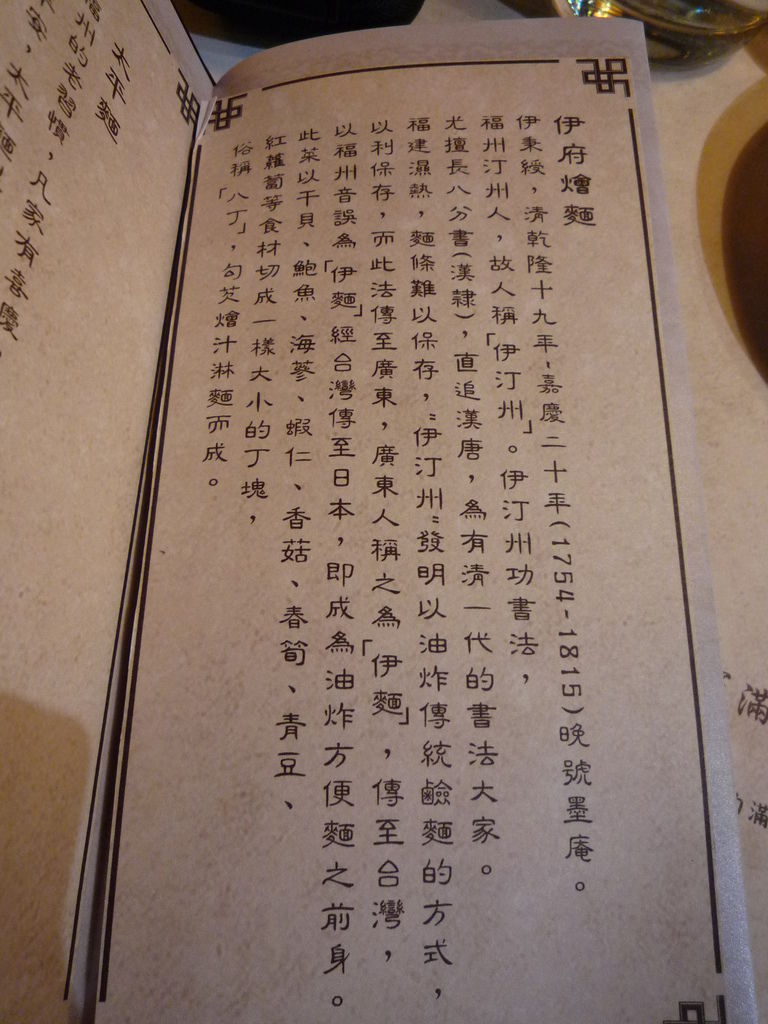 伊府燴麵
伊秉綬，清乾隆十九年-嘉慶二十年(1754-1815)晚號墨庵。
福州汀州人，故人稱「伊汀州」。伊汀州功書法，
尤擅長八分書(漢隸)，直追漢唐，為有清一代的書法大家。
福建濕熱，麵條難以保存，"伊汀州"發明以油炸傳統鹼麵的方式，
以利保存，而此法傳至廣東，廣東人稱之為「伊麵」，傳至台灣，
以福州音誤為「伊麵」經台灣傳至日本，即成為油炸方便麵之前身。
此菜以干貝、鮑魚、海蔘、蝦仁、香菇、春筍、青豆、
紅蘿蔔等食材切成一樣大小的丁塊，
俗稱「八丁」，勾芡燴汁淋麵而成。
太平麵
福州的老習慣，凡家有喜慶，
平安，太平麵
滿
滿